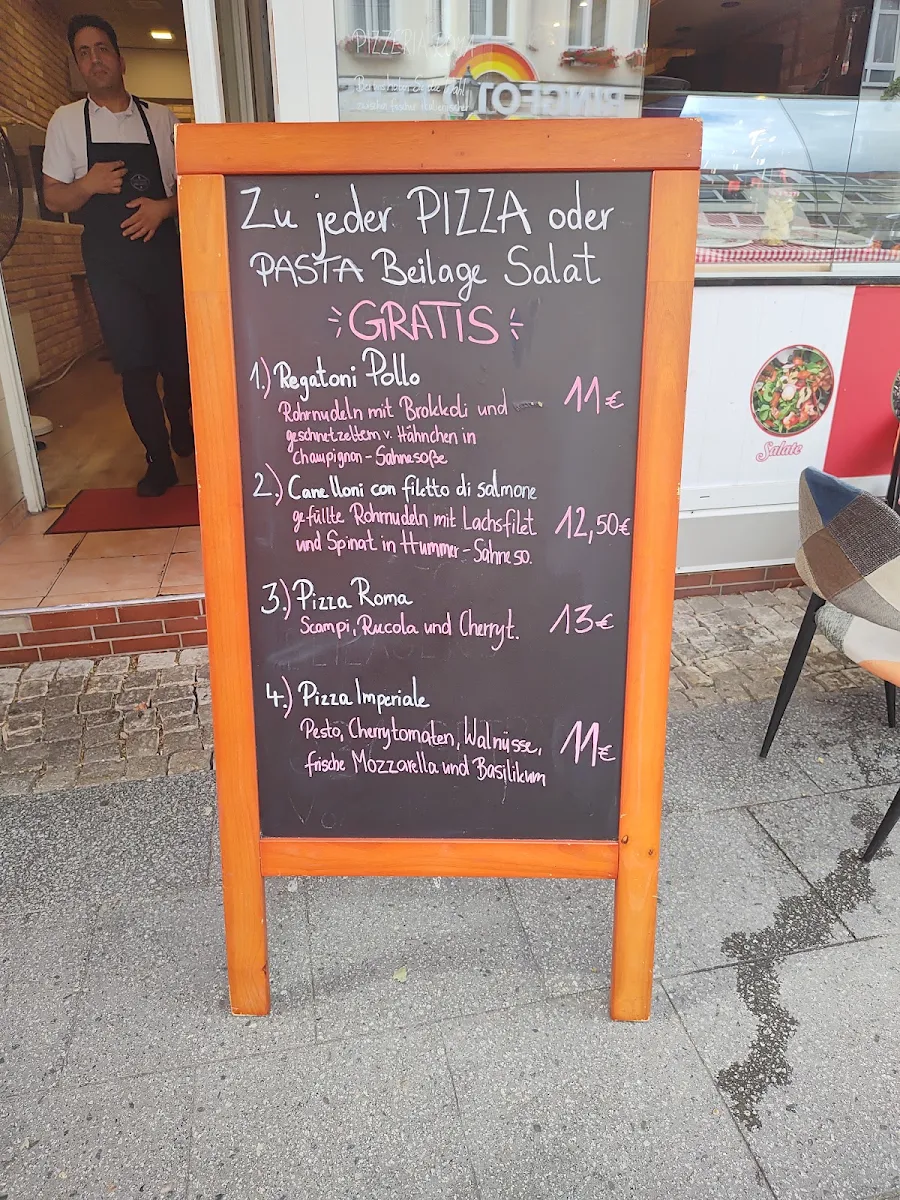 PIZZERIA
Zu jeder PIZZA oder
PASTA Beilage Salat
GRATIS
1.) Regatoni Pollo
Rohrnudeln mit Brokkoli und
geschnetzeltem v. Hähnchen in
Chaupignon-Sahnesoße
11€
2.) Canelloni con filetto di salmone
gefüllte Rohrnudeln mit Lachsfilet
und Spinat in Hummer-Sahneso.
12,50€
3.) Pizza Roma
Scampi, Rucola und Cherryt.
13€
4.) Pizza Imperiale
Pesto, Cherrytomaten, Walnüsse,
frische Mozzarella und Basilikum
11€
Salate